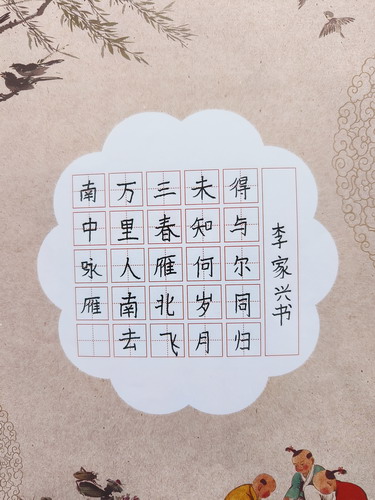 南中咏雁
万里人南去
三春雁北飞
未知何岁月
得与尔同归
李家兴书